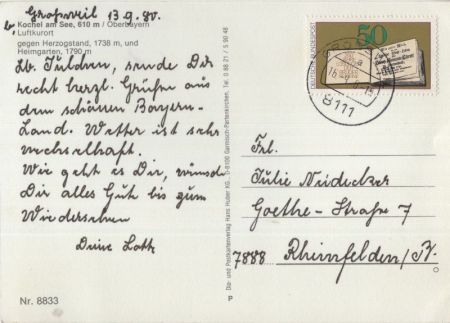 Großweil 13.9.80.
b. Kochel am See, 610 m / Oberbayern
Luftkurort
gegen Herzogstand, 1738 m, und
Heimgarten, 1790 m
Lb. Julchen, sende Dir
recht herzl. Grüße aus
dem schönen Bayern-
Land. Wetter ist sehr
wechselhaft.
Wie geht es Dir, wünsche
Dir alles Gute bis zum
Wiedersehen
Deine
Nr. 8833
Dia- und Postkartenverlag Hans Huber KG, D-8100 Garmisch-Partenkirchen, Tel. 0 88 21 / 5 90 48
P
DEUTSCHE BUNDESPOST
50
8111
Frl.
Julie Neidecker
Goethe-Straße 7
7888 Rheinfelden/B.